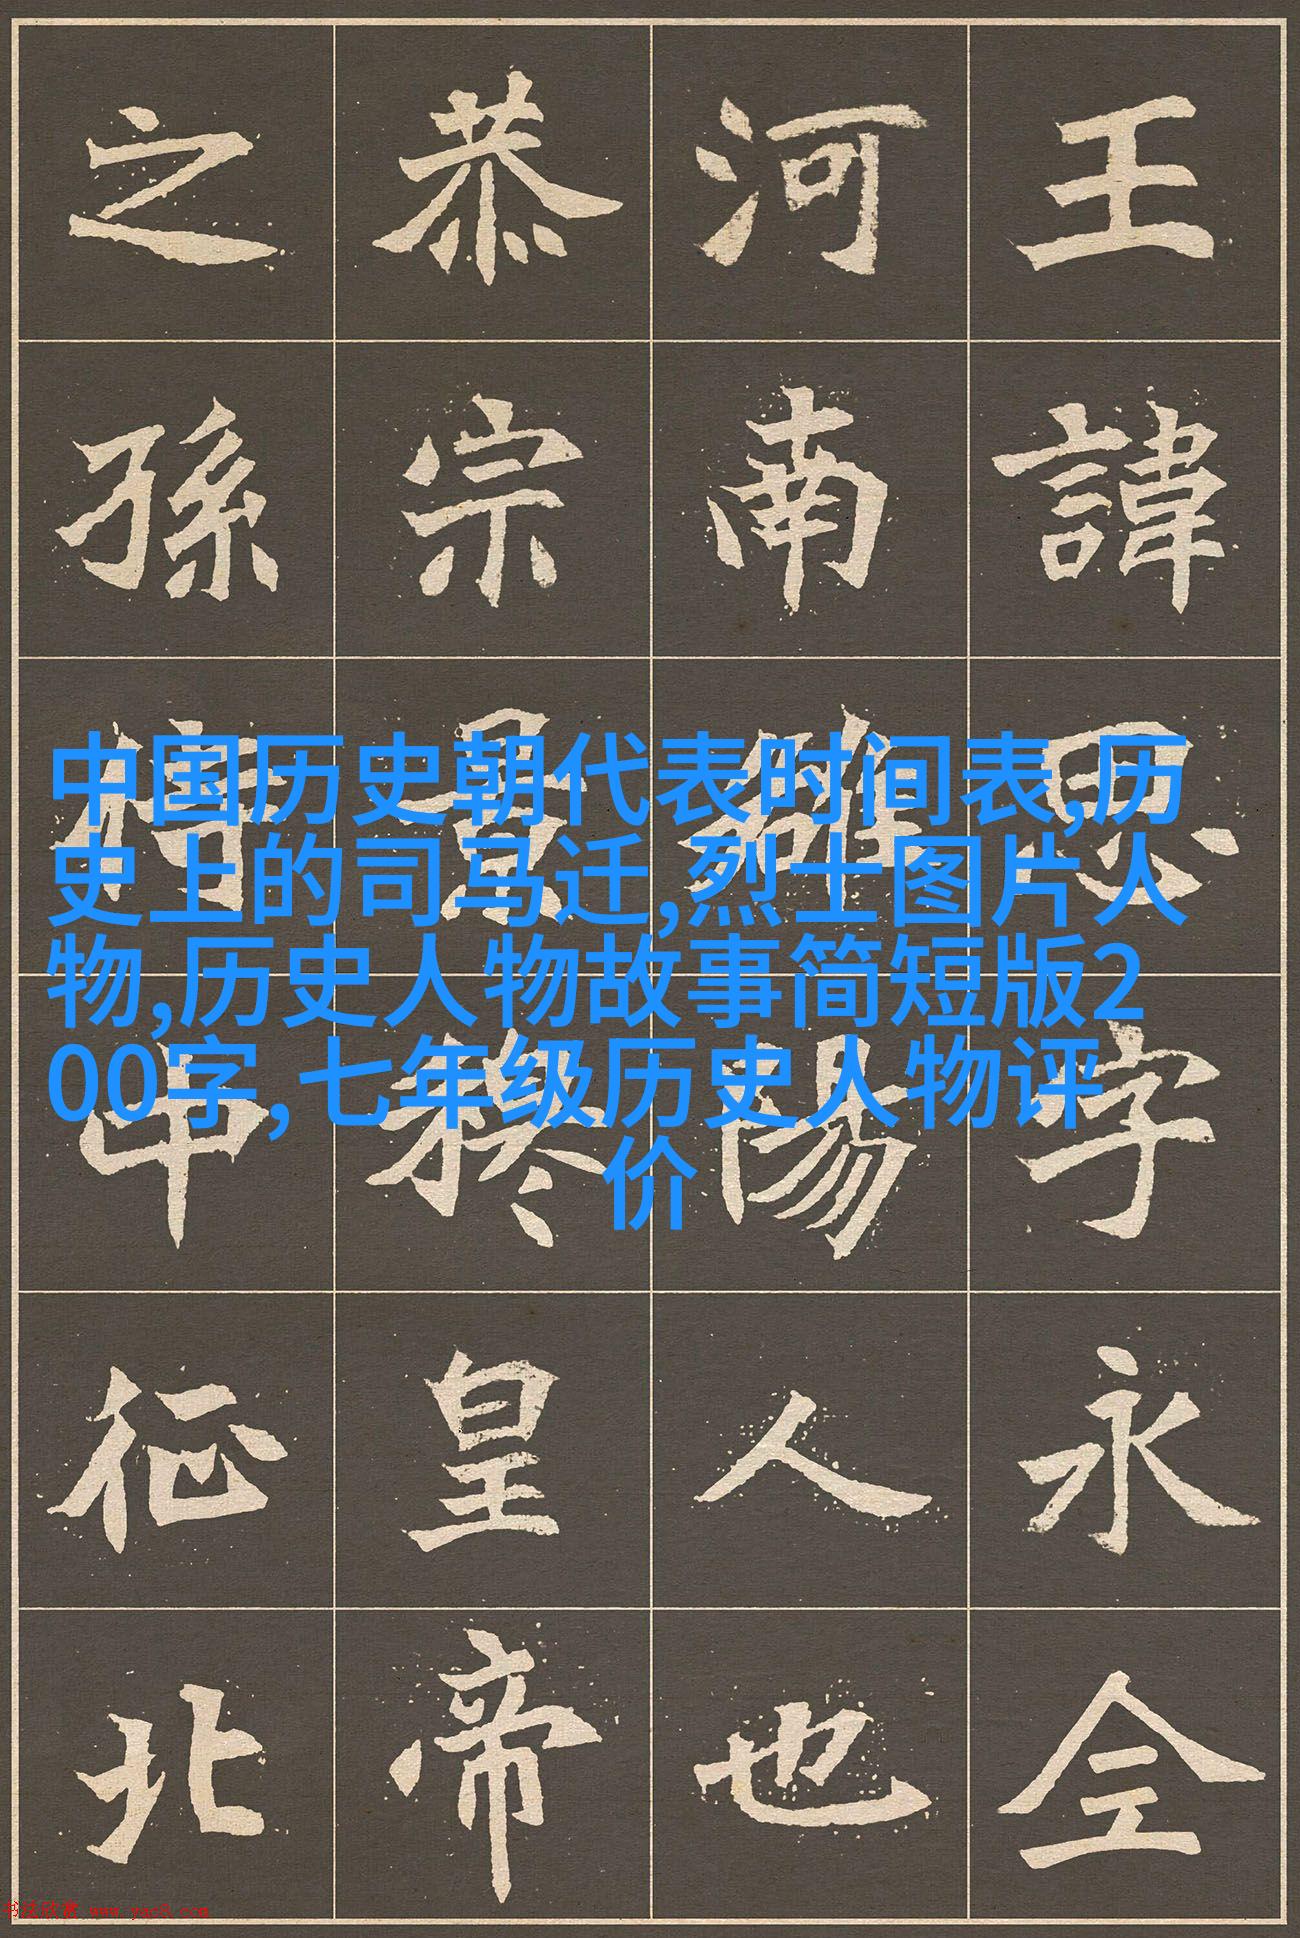 王諱思字永全
河南雒陽人也
恭宗景穆皇帝
之孫中征北
中国历史朝代表时间表,历
史上的司马迁,烈士图片人
物,历史人物故事简短版2
00字, 七年级历史人物评
价
书法欣赏 www.yac8.com